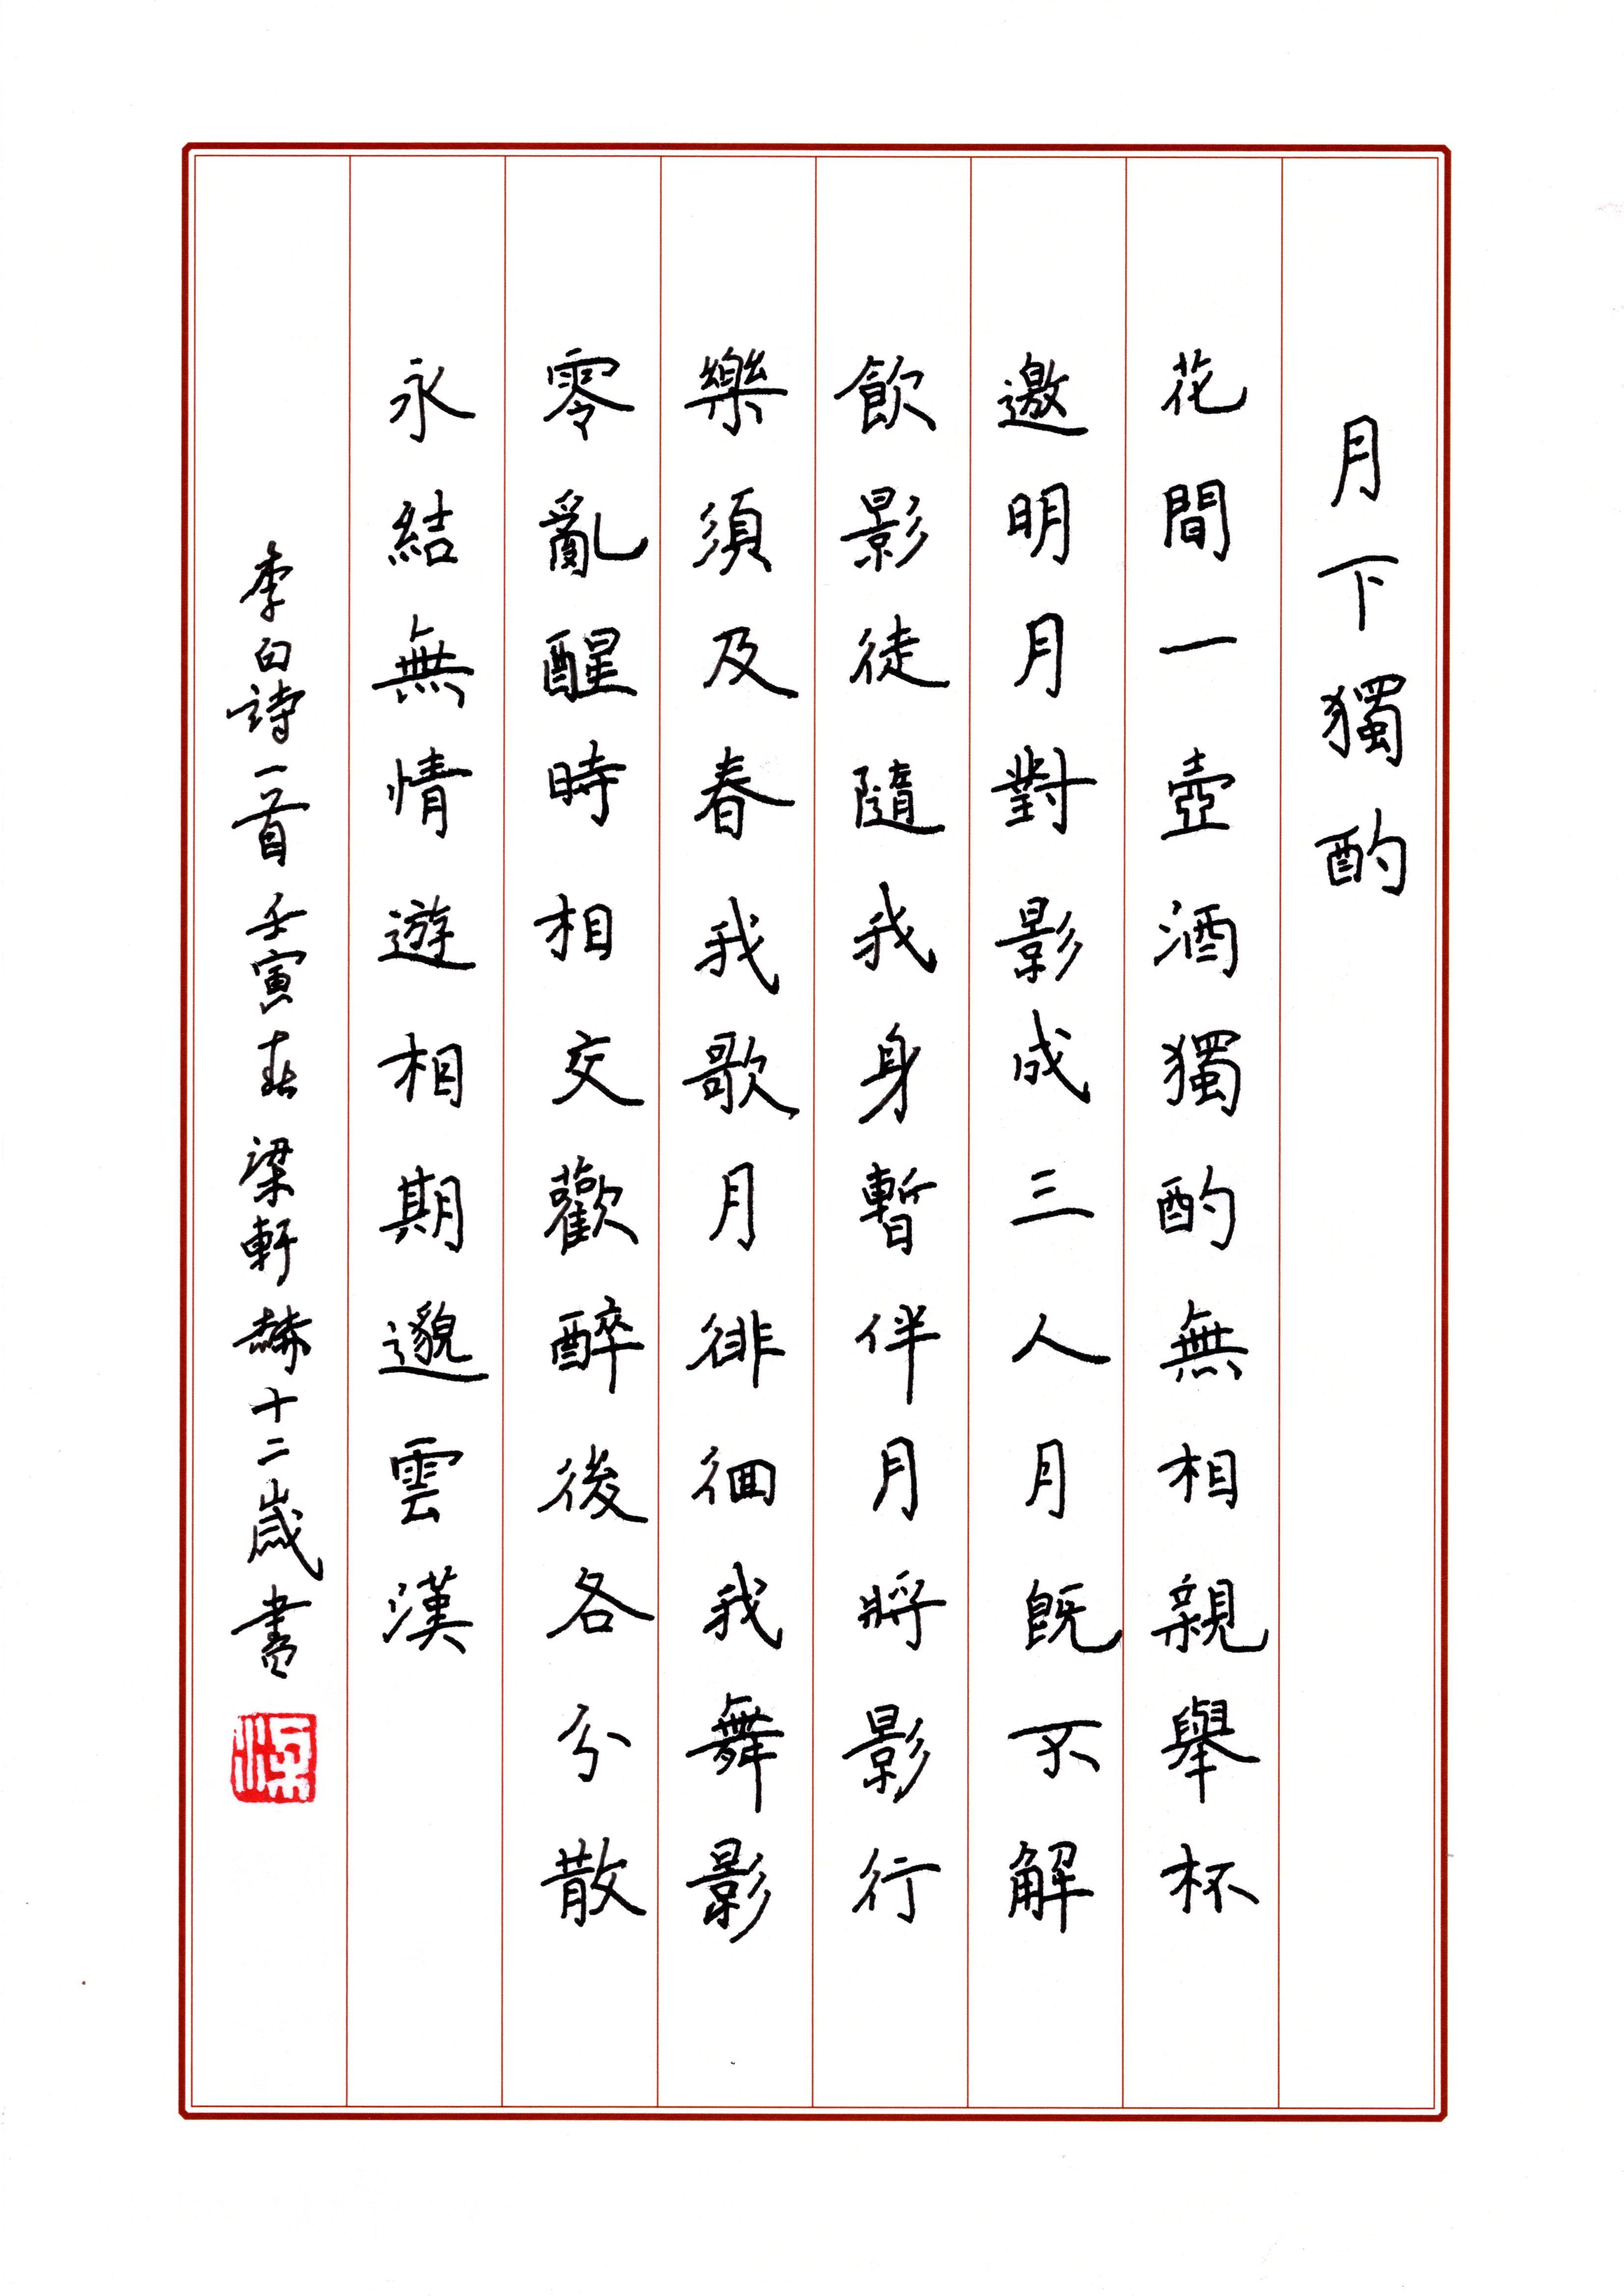 月下獨酌
花間一壺酒獨酌無相親舉杯
邀明月對影成三人月既不解
飲影徒隨我身暫伴月將影行
樂須及春我歌月徘徊我舞影
零亂醒時相交歡醉後各分散
永結無情遊相期邈雲漢
李白詩一首 壬寅春 梁軒赫十二歲書
梁